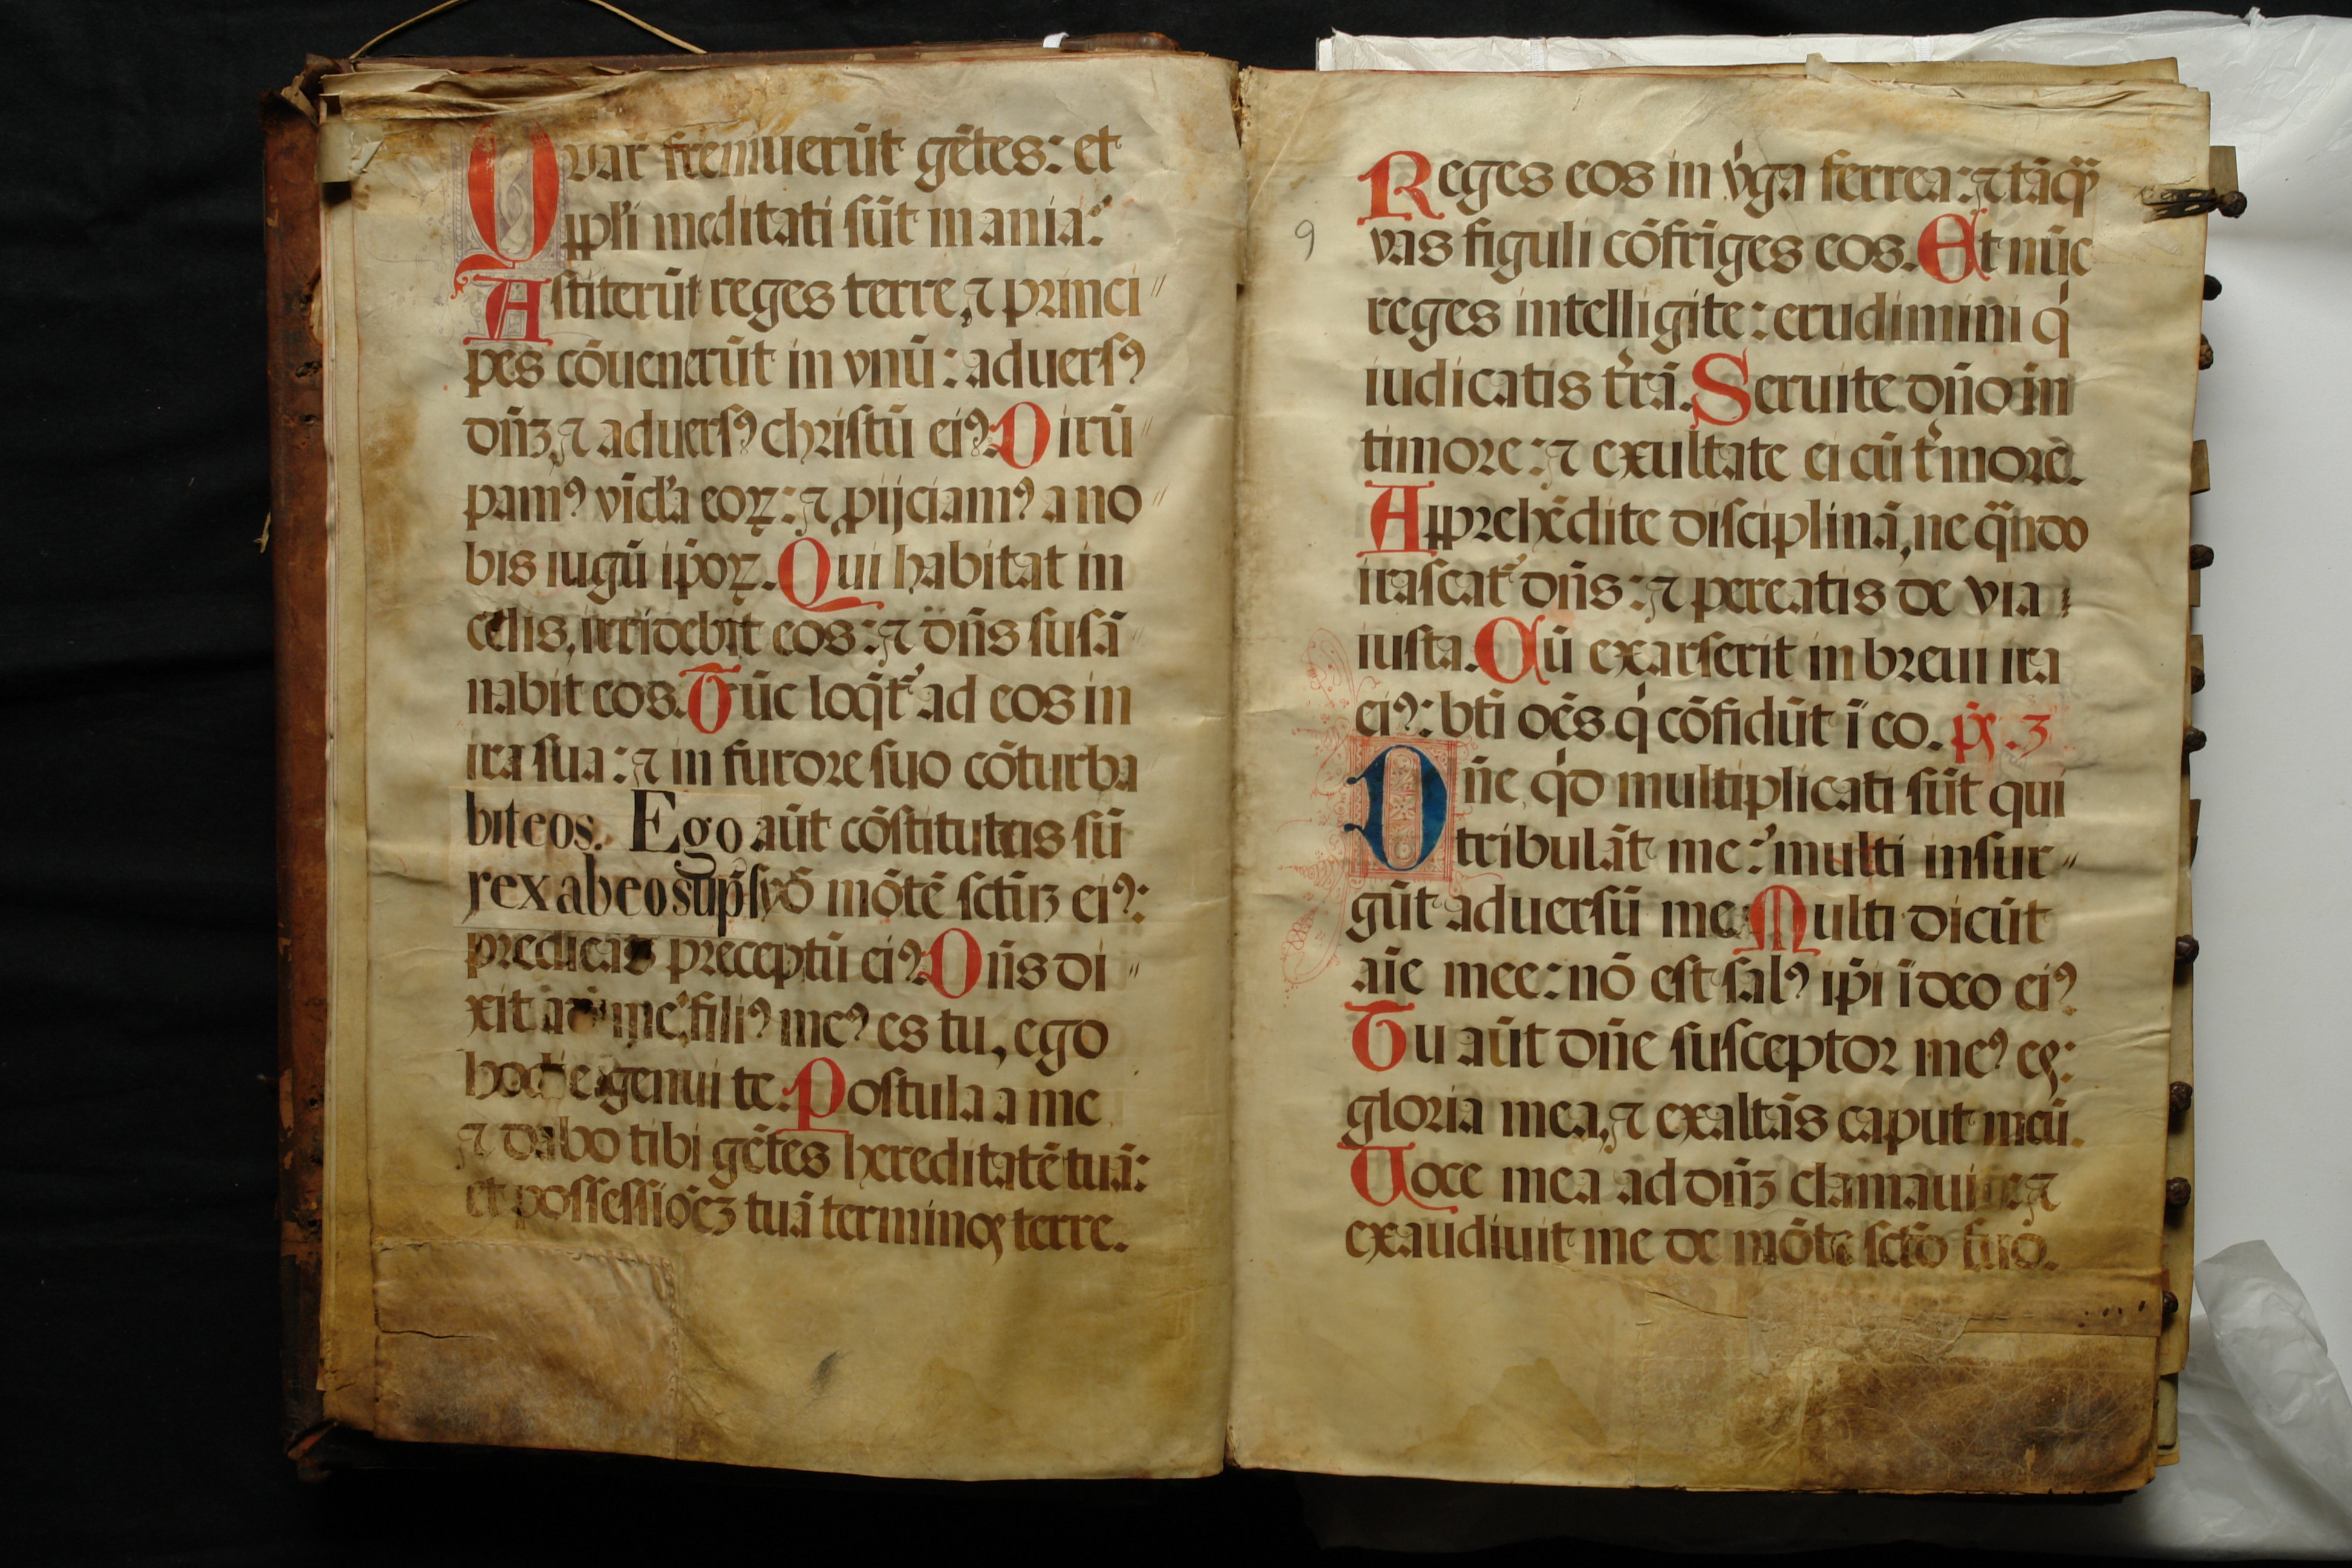 Quar̄ fremuerūt gētes: et
ppl̄i meditati sūt inania:
Astiterūt reges terre, ⁊ princi〃
pes cōuenerūt in vnū: aduersꝰ
dn̄ʒ, ⁊ aduersꝰ christū eiꝰ. Dirū〃
pamꝰ vīcl̕a eoꝝ: ⁊ ꝓijciamꝰ a no〃
bis iugū ip̄oꝝ. Qui habitat in
celis, irridebit eos: ⁊ dn̄s subsā〃
nabit eos. Tūc loq̄t᷑ ad eos in
ira sua: ⁊ in furore suo cōturba
biteos. Ego aūt cōstitutus sū
rex ab eo sup̄ syō mōtē sctūʒ eiꝰ:
predicās preceptū eiꝰ. Dn̄s di〃
xit ad me: filiꝰ meꝰ es tu, ego
hodie genui te. Postula a me
⁊ dabo tibi gētes hereditatē tuā:
et possessiōeʒ tuā terminos terre.
Reges eos in v̓ga ferrea: ⁊ tāqȝ̄
9
vas figuli cōfriges eos. Et nūc
reges intelligite: erudimini qͥ
iudicatis t̓rā. Seruite dn̄o in
timore: ⁊ exultate ei cū t̓more.
Apprehēdite disciplinā, ne qn̄do
irascat᷑ dn̄s: ⁊ pereatis de via
iusta. Cū exarserit in breui ira
eiꝰ: bt̄i oēs qͥ cōfidūt ī eo. ps̄. 3
Dn̄e qͥd multiplicati sūt qui
tribulāt me: multi insur〃
gūt aduersū me. Multi dicūt
aīe mee: nō est salꝰ ip̄i ī deo eiꝰ
Tu aūt dn̄e susceptor meꝰ es:
gloria mea, ⁊ exaltās caput meū.
Uoce mea ad dn̄ʒ clamaui: ⁊
exaudiuit me de mōte sctō suo.